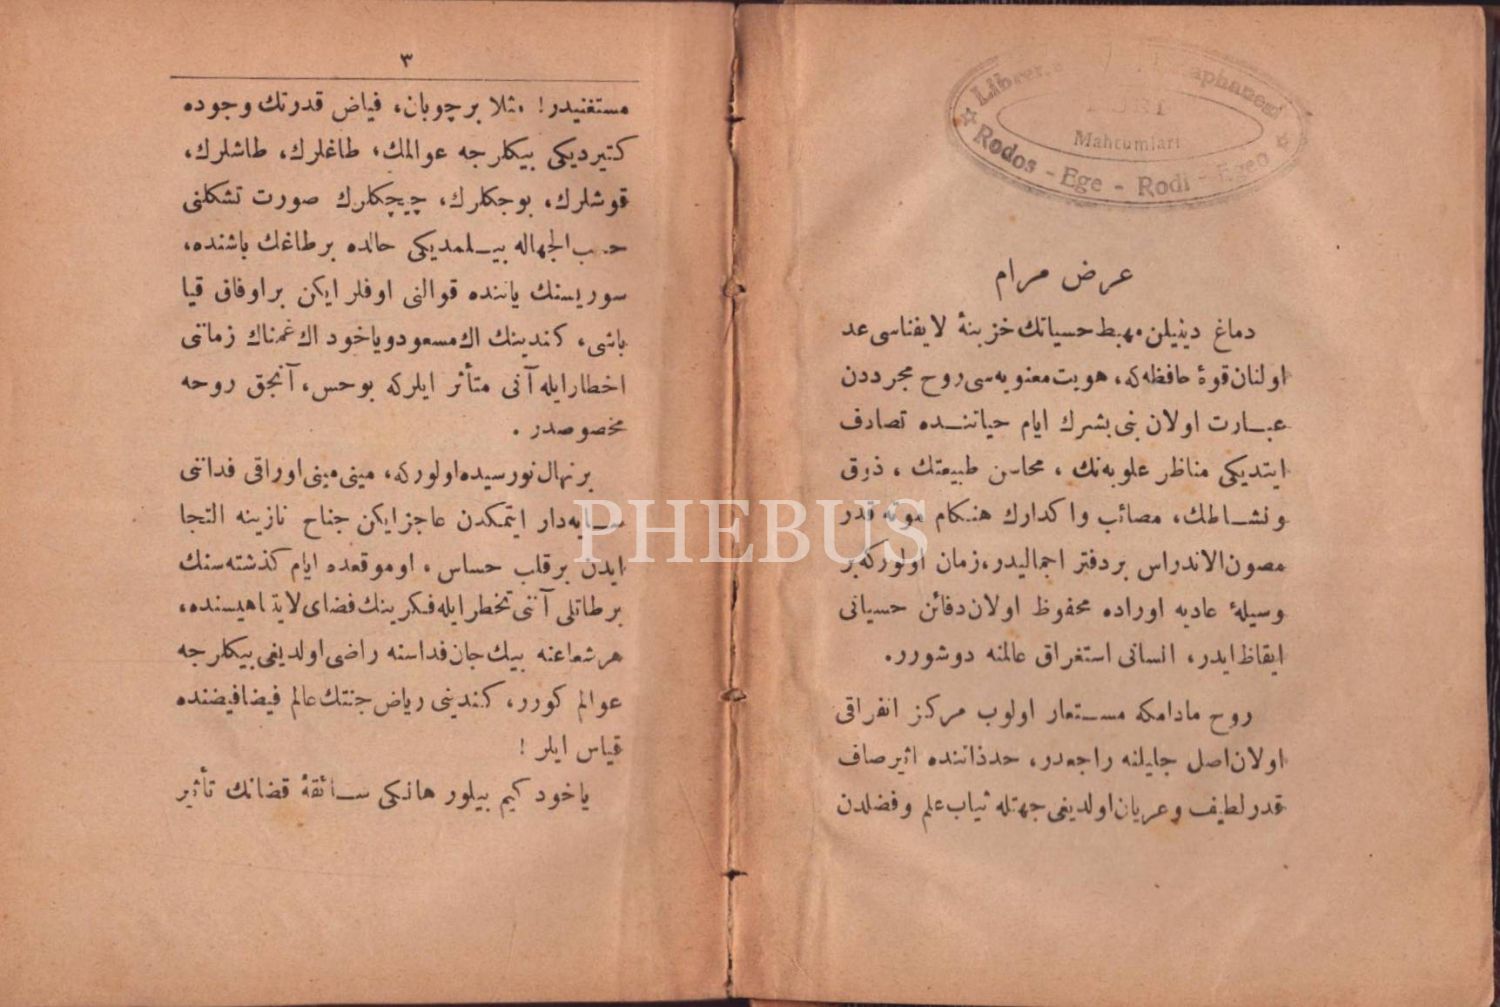 عرض مرام
دماغ دینیلن مهبط حسیاتك خزینهٔ لایفناسی عد
اولنان قوهٔ حافظه‌كه، هویت معنویه‌سی روح مجرددن
عبارت اولان بنی بشرك ایام حیاتنده تصادف
ایتدیكی مناظر علویه‌نك ، محاسن طبیعتك ، ذوق
ونشاطك، مصائب واكدارك هنكام موته قدر
مصون الاندراس بر دفتر اجمالیدر، زمان اولوركه بر
وسیلهٔ عادیه اوراده محفوظ اولان دفائن حسیاتی
ایقاظ ایدر، انسانی استغراق عالمنه دوشورر.
روح مادامكه مستعار اولوب مركز انفراقی
اولان اصل جلیلنه راجعدر، حد ذاتنده اثیر صاف
قدر لطیف وعریان اولدیغی جهتله ثیاب علم وفضلدن
٣
مستغنیدر! مثلا بر چوبان، فیاض قدرتك وجوده
كتیردیكی بیكلرجه عوالمك، طاغلرك، طاشلرك،
قوشلرك، بوجكلرك، چیچكلرك صورت تشكلنی
حسب الجهاله بیلمدیكی حالده بر طاغك باشنده،
سوریسنك یاننده قوالنی اوفلر ایكن بر اوفاق قیا
باشی، كندینك اك مسعود ویاخود اك غمناك زمانی
اخطار ایله آنی متأثر ایلركه بو حس، آنجق روحه
مخصوصدر .
بر نهال نورسیده اولوركه، مینی مینی اوراقی فداننی
سایه‌دار ایتمكدن عاجز ایكن جناح نازینه التجا
ایدن بر قلب حساس ، او موقعده ایام كذشته‌سنك
بر طاتلی آننی تخطر ایله فكرینك فضای لایتناهیسنده،
هر شعاعنه بیك جان فداسنه راضی اولدیغی بیكلرجه
عوالم كورر، كندینی ریاض جنتك عالم فیضافیضنده
قیاس ایلر !
یاخود كیم بیلور هانكی سائقهٔ قضانك تأثیر
Rodos - Ege - Rodi - Egeo
Mahtumları
PHEBUS